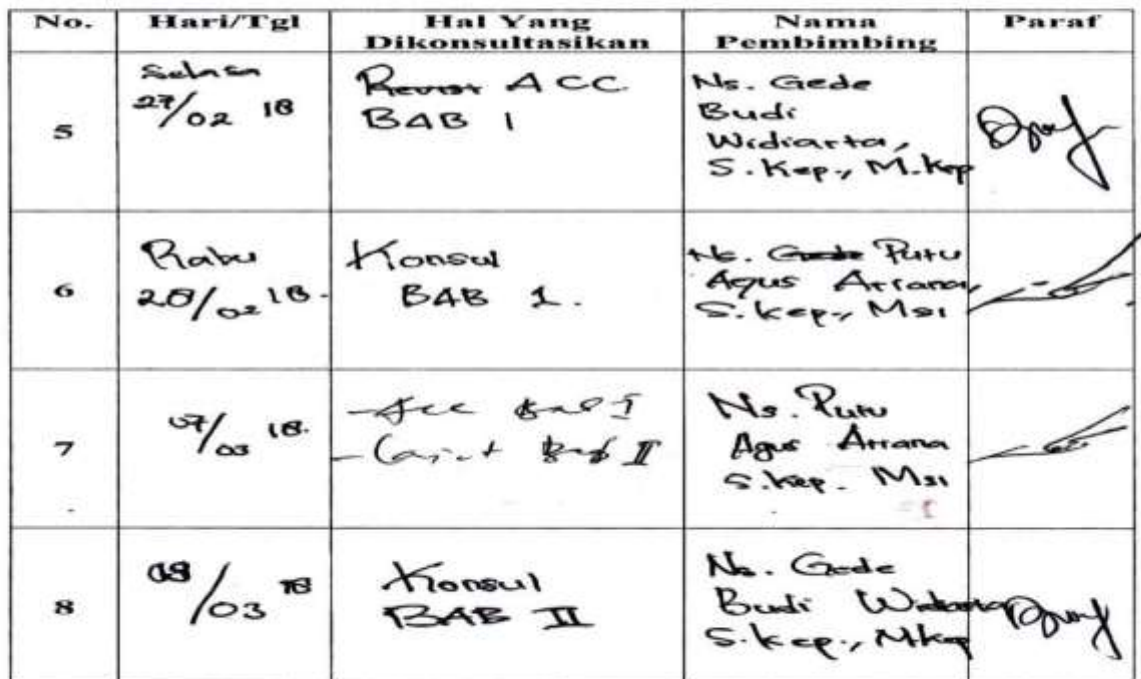 No. Hari/Tgl Hal Yang Dikonsultasikan Nama Pembimbing Paraf
5 Selasa 27/02 18 Revisi ACC BAB 1 Ns. Gede Budi Widiarta, S.Kep., M.Kep
6 Rabu 28/02 18. Konsul BAB 1. Ns. Putu Agus Ariana, S.kep., Msi
7 07/03 18. - Acc Bab I - Lanjut Bab II Ns. Putu Agus Ariana S.kep. Msi
8 08/03 18 Konsul BAB II Ns. Gede Budi Widiarta S.kep., Mkep